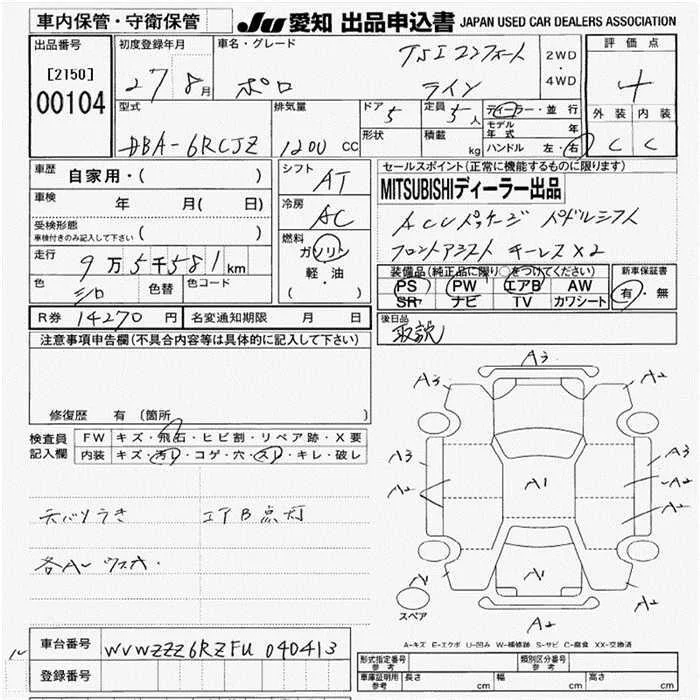 車内保管・守衛保管
JU 愛知 出品申込書 JAPAN USED CAR DEALERS ASSOCIATION
出品番号
[2150]
00104
初度登録年月
27 8月
車名・グレード
ポロ
TSI コンフォート
ライン
2WD
・
4WD
評価点
4
外装 内装
C C
型式
DBA-6RCJZ
排気量
1200 CC
ドア
5
形状
定員
5人
積載
kg
ディーラー・並行
モデル年式 年
ハンドル 左・右
車歴 自家用・( )
車検 年 月( 日)
受検形態
車検付きのみ記入して下さい ( )
走行 9万5千581km
色 シロ 色替 色コード
シフト AT
冷房 AC
燃料
ガソリン
軽・油
( )
セールスポイント(正常に機能するものに限ります)
MITSUBISHIディーラー出品
ACCパッケージ パドルシフト
フロントアシスト キーレス×2
装備品(純正品に限り○をつけてください)
PS PW エアB AW
SR ナビ TV カワシート
新車保証書
有・無
R券 14270円 名変通知期限 月 日
後日品
取説
注意事項申告欄(不具合内容等は具体的に記入して下さい)
修復歴 有 (箇所 )
検査員記入欄
FW キズ・飛石・ヒビ割・リペア跡・X要
内装 キズ・汚レ・コゲ・穴・スレ・キレ・破レ
天バリうき エアB点灯
各A〜 ウスキ.
A3
A2 A2
A3 A3
A1
A2 A2
A2
A1 A1
A2
A2
スペア
A-キズ E-エクボ U-凹み W-補修跡 S-サビ C-腐食 XX-交換済
車台番号 WVWZZZ6RZFU040413
登録番号
形式指定番号 参考
類別区分番号 参考
車庫証明用 参考 長さ cm 幅 cm 高さ cm